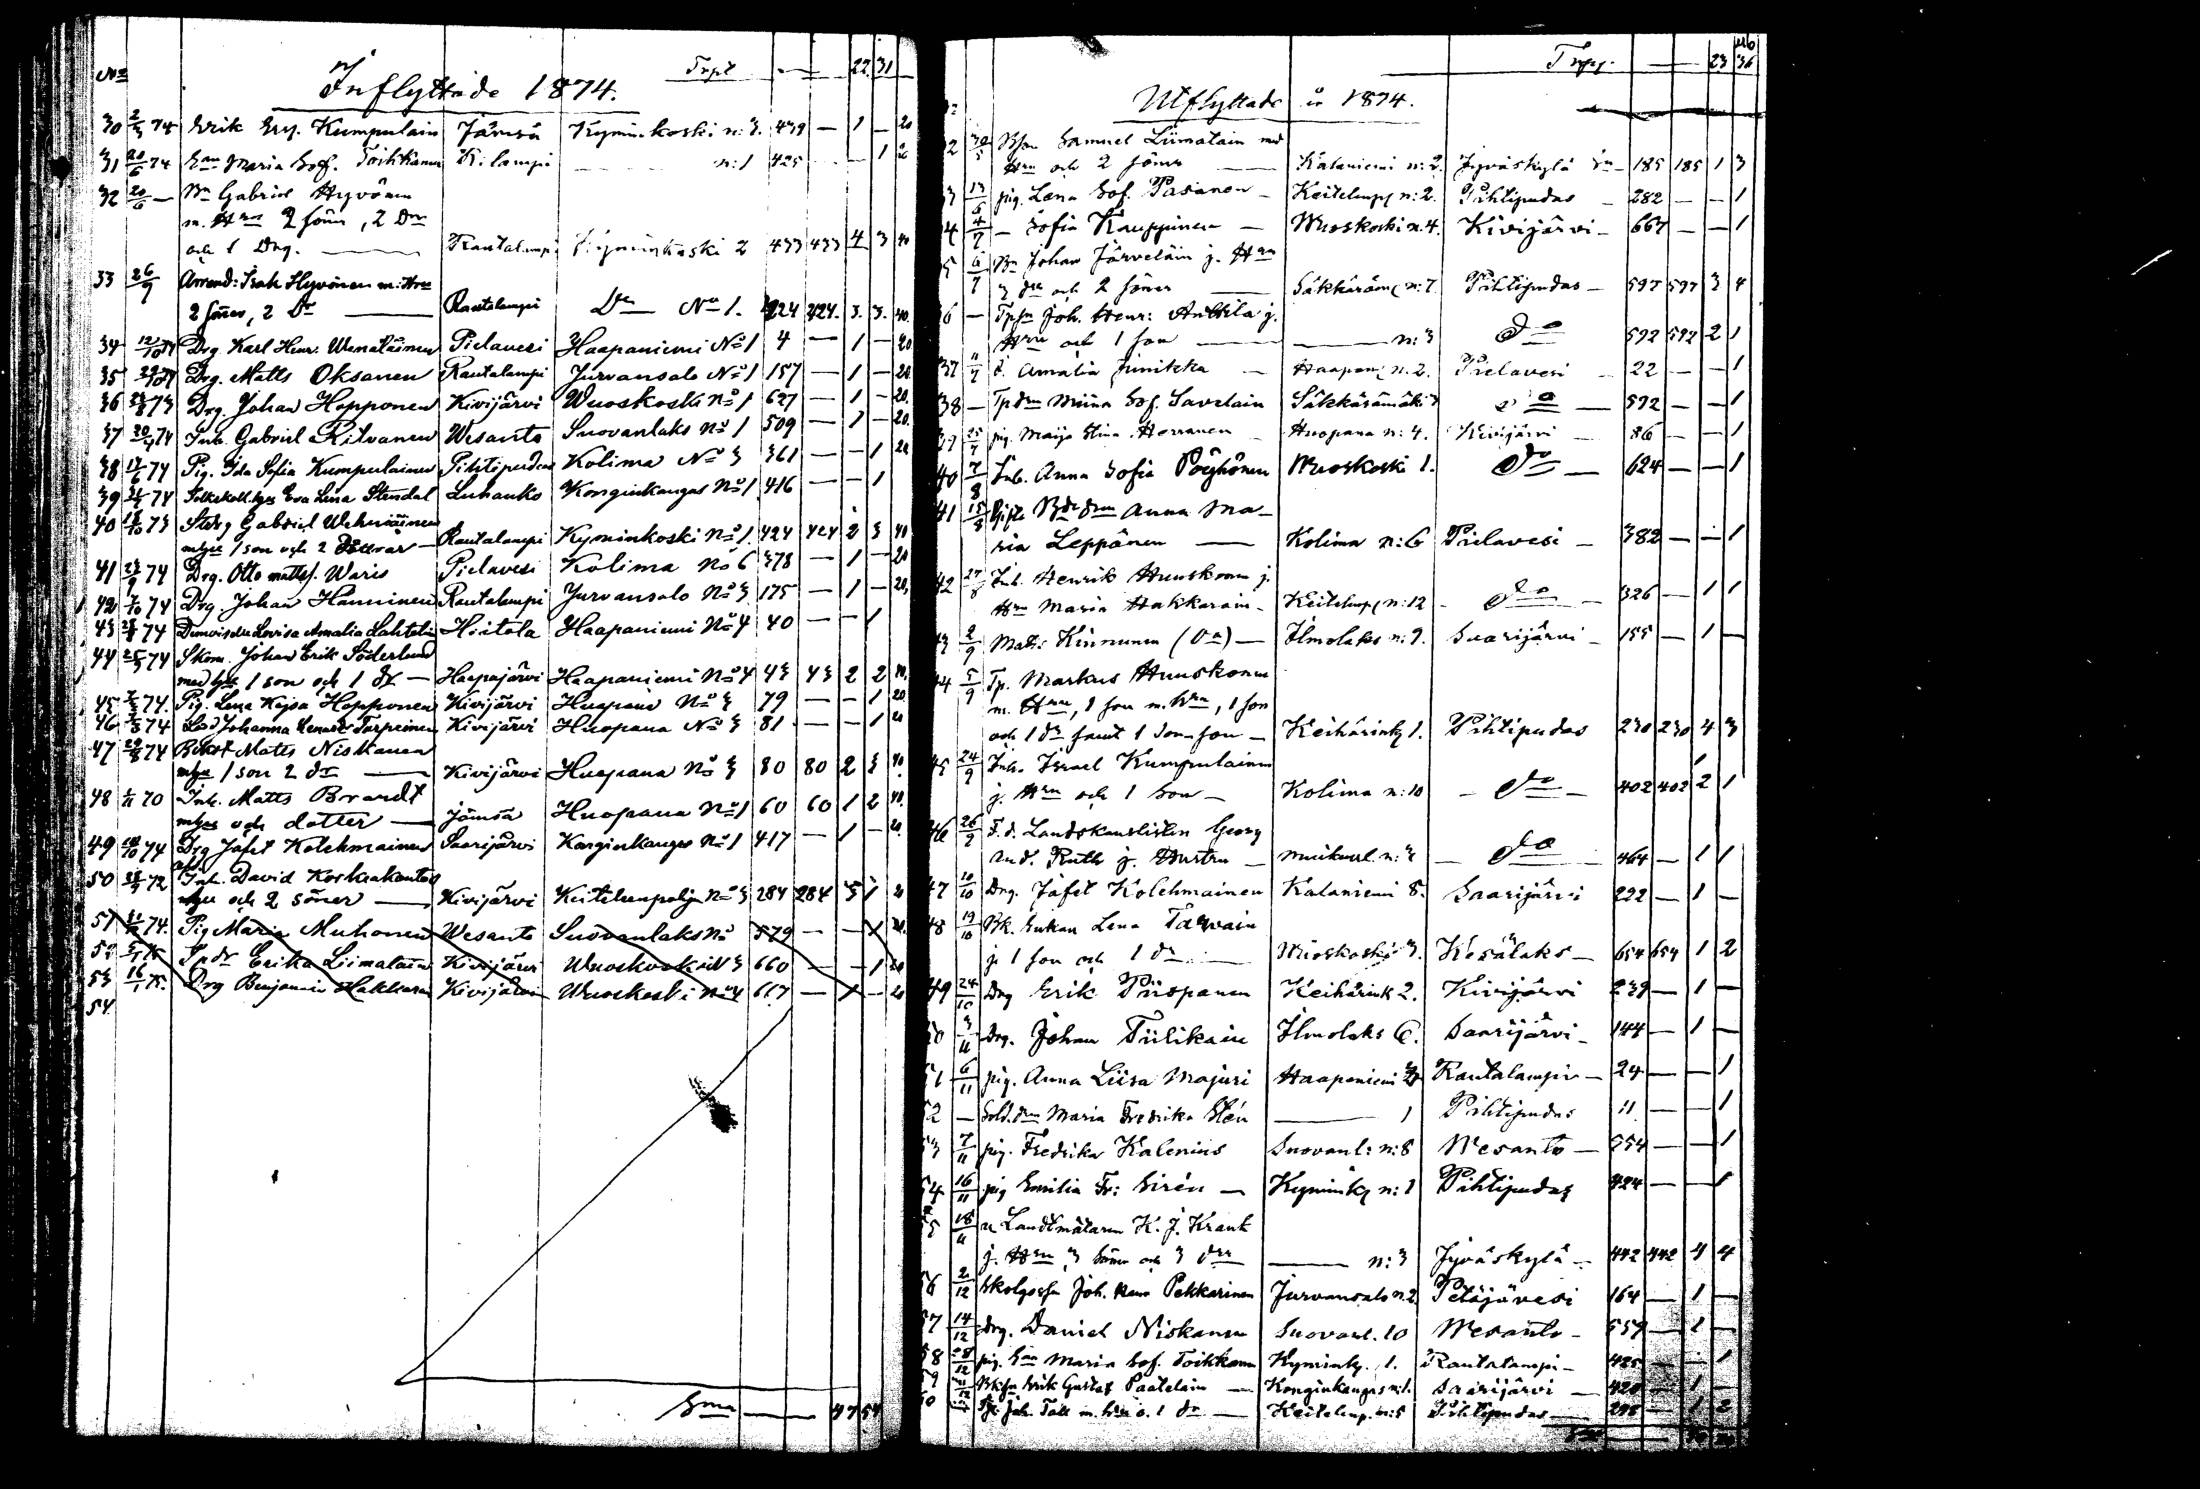 No Trspt — 22 31
Inflyttade 1874.
30 2/3 74 Erik Erij. Kumpulain Jämsä Kyminkoski n: 3. 439 — 1 — 20
31 20/6 74 Maria Sof. Toikkanen K:lampi n:1 425 — — 1 20
32 20/6 — Bn Gabriel Hyvönen
m. Hru 2 söner, 2 Dr
och 1 Drg. — Rautalampi Kyminkoski 2 433 433 4 3 40
33 26/9 Arrend: Isak Hyvönen m: Hru
2 söner, 2 Dr — Rautalampi Do No 1. 424 424. 3. 3. 40.
34 12/10 74 Drg. Karl Henr. Wenäläinen Pielavesi Haapaniemi No 1 4 — 1 — 20
35 Drg. Matts Oksanen Rautalampi Jurvansalo No 1 157 — 1 — 20
36 73 Drg. Johan Hopponen Kivijärvi Wuoskoski No 1 627 — 1 — 20.
37 74 Inh. Gabriel Ritvanen Wesanto Suovanlaks No 1 509 — 1 — 20.
38 74 Pig. Ida Sofia Kumpulainen Pihtipudas Kolima No 3 361 — — 1 20
39 74 Eva Lena Stendal Luhanko Konginkangas No 1 416 — — 1
40 73 Gabriel
mhu 1 son och 2 döttrar — Rautalampi Kyminkoski No 1 424 424 2 3 40
41 74 Drg. Otto mattsf. Waris Pielavesi Kolima No 6 378 — 1 — 20
42 74 Drg. Johan Hänninen Rautalampi Jurvansalo No 3 175 — 1 — 20,
43 74 Lovisa Amalia Lahtela Hiitola Haapaniemi No 4 40 — — 1
44 74 Skom. Johan Erik Söderlund
med 1 son och 1 dr — Haapajärvi Haapaniemi No 4 43 43 2 2 40.
45 74. Pig. Lena Kajsa Hopponen Kivijärvi Huopana No 3 79 — — 1 20
46 74 Johanna Tarpeinen Kivijärvi Huopana No 3 81 — — 1 20
47 74 Matts Niskanen
mhu 1 son 2 dr — Kivijärvi Huopana No 3 80 80 2 3 40.
48 70 Inh. Matts Brandt
mhu och dotter — Jämsä Huopana No 1 60 60 1 2 40.
49 74 Drg Jafet Kolehmainen Saarijärvi Konginkangas No 1 417 — 1 — 20
50 72 Inh. David
mhu och 2 söner — Kivijärvi Keitelenpohja No 3 284 284 3 1
51 74. Pig Maria Muhonen Wesanto Suovanlaks No 579 — — 1 20.
52 75 Erika Liimatain Kivijärvi Wuoskoski No 3 660 — — 1 20
53 16/1 75. Drg Benjamin Hakkarn Kivijärvi Wuoskoski No 4 667 — 1 — 20
54
Sma — 47 54
Trspt — 23 36
Utflyttade år 1874.
Samuel Liimatain md
Hru och 2 söner — Kalaniemi n:2. Jyväskylä — 185 185 1 3
13/6 pig. Lena Sof. Pasanen — Keitelenp n:2. Pihtipudas — 282 — — 1
4/7 — Sofia Kauppinen — Wuoskoski n. 4. Kivijärvi — 667 — — 1
6/7 Bn Johan Järveläin j. Hru
3 dr och 2 söner — Säkkäräm n:7 Pihtipudas — 597 597 3 4
36 — Joh. Henr: Anttila j.
Hru och 1 son — n:3 Do 592 592 2 1
37 Amalia Finitzka — Haapan n. 2. Pielavesi — 22 — — 1
38 — Miina Sof. Savelain Säkkärämäki 3 Do — 592 — — 1
25/7 pig. Maija Stina Horranen Huopana n: 4. Kivijärvi — 86 — — 1
40 7/8 Inh. Anna Sofia Pöyhönen Wuoskoski 1. Do — 624 — — 1
41 15/8 Anna Ma-
ria Leppänen — Kolima n:6 Pielavesi — 382 — — 1
42 27/8 Inh. Henrik Huuskonen j.
Hru Maria Hakkarain — Keitelenp n:12 — Do — 326 — 1 1
2/9 Matts Kinnunen — Ilmolaks n: 9. Saarijärvi — 155 — 1 —
5/9 Tp. Markus Huuskonen
m. Hru, 1 son m. hru, 1 son
och 1 dr samt 1 sons son — Keihärink 1. Pihtipudas 230 230 4 3
24/9 Inh. Israel Kumpulainen
j. Hru och 1 son — Kolima n:10 — Do — 402 402 2 1
26/9 T. d. Landskanslisten Georg
And. Ruth j. Hustru — n:2 — Do — 464 — 1 1
47 10/10 Drg. Jafet Kolehmainen Kalaniemi 8. Saarijärvi 222 — 1 —
48 19/10 Bk. Enkan Lena Tarvain
j. 1 son och 1 dr — Wuoskoski 3. Kesälaks — 654 654 1 2
49 24/10 Drg Erik Piispanen Keihärink 2. Kivijärvi 239 — 1 —
50 3/11 Drg. Johan Tiilikain Ilmolaks 6. Saarijärvi — 144 — 1 —
51 6/11 pig. Anna Liisa Majuri Haapaniemi Rautalampi — 24 — — 1
52 — Sold. dm Maria Fredrika Stén — 1 Pihtipudas 11 — — 1
53 7/11 pig. Fredrika Kalenius Suovanl: n:8 Wesanto — 554 — — 1
54 16/11 pig Emilia Fr: Sirén — Kymink n:1 Pihtipudas 424 — — 1
55 18/11 Landtmätaren K. J. Krank
j. Hru 3 söner och 3 drr — n:3 Jyväskylä — 442 442 4 4
56 2/12 Joh. Pekkarinen Jurvansalo n. 2. Petäjävesi 164 — 1 —
57 14/12 Drg. Daniel Niskanen Suovanl. 10 Wesanto — 559 — 1 —
58 28/12 pig. Maria Sof. Toikkanen Kymink. 1. Rautalampi — 425 — — 1
59 Erik Gustaf Paatelain — Konginkangas n:1. Saarijärvi — 420 — 1 —
60 Joh. Tall m. hru o. 1 dr — Keitelenp. n:5 Pihtipudas — 1 2